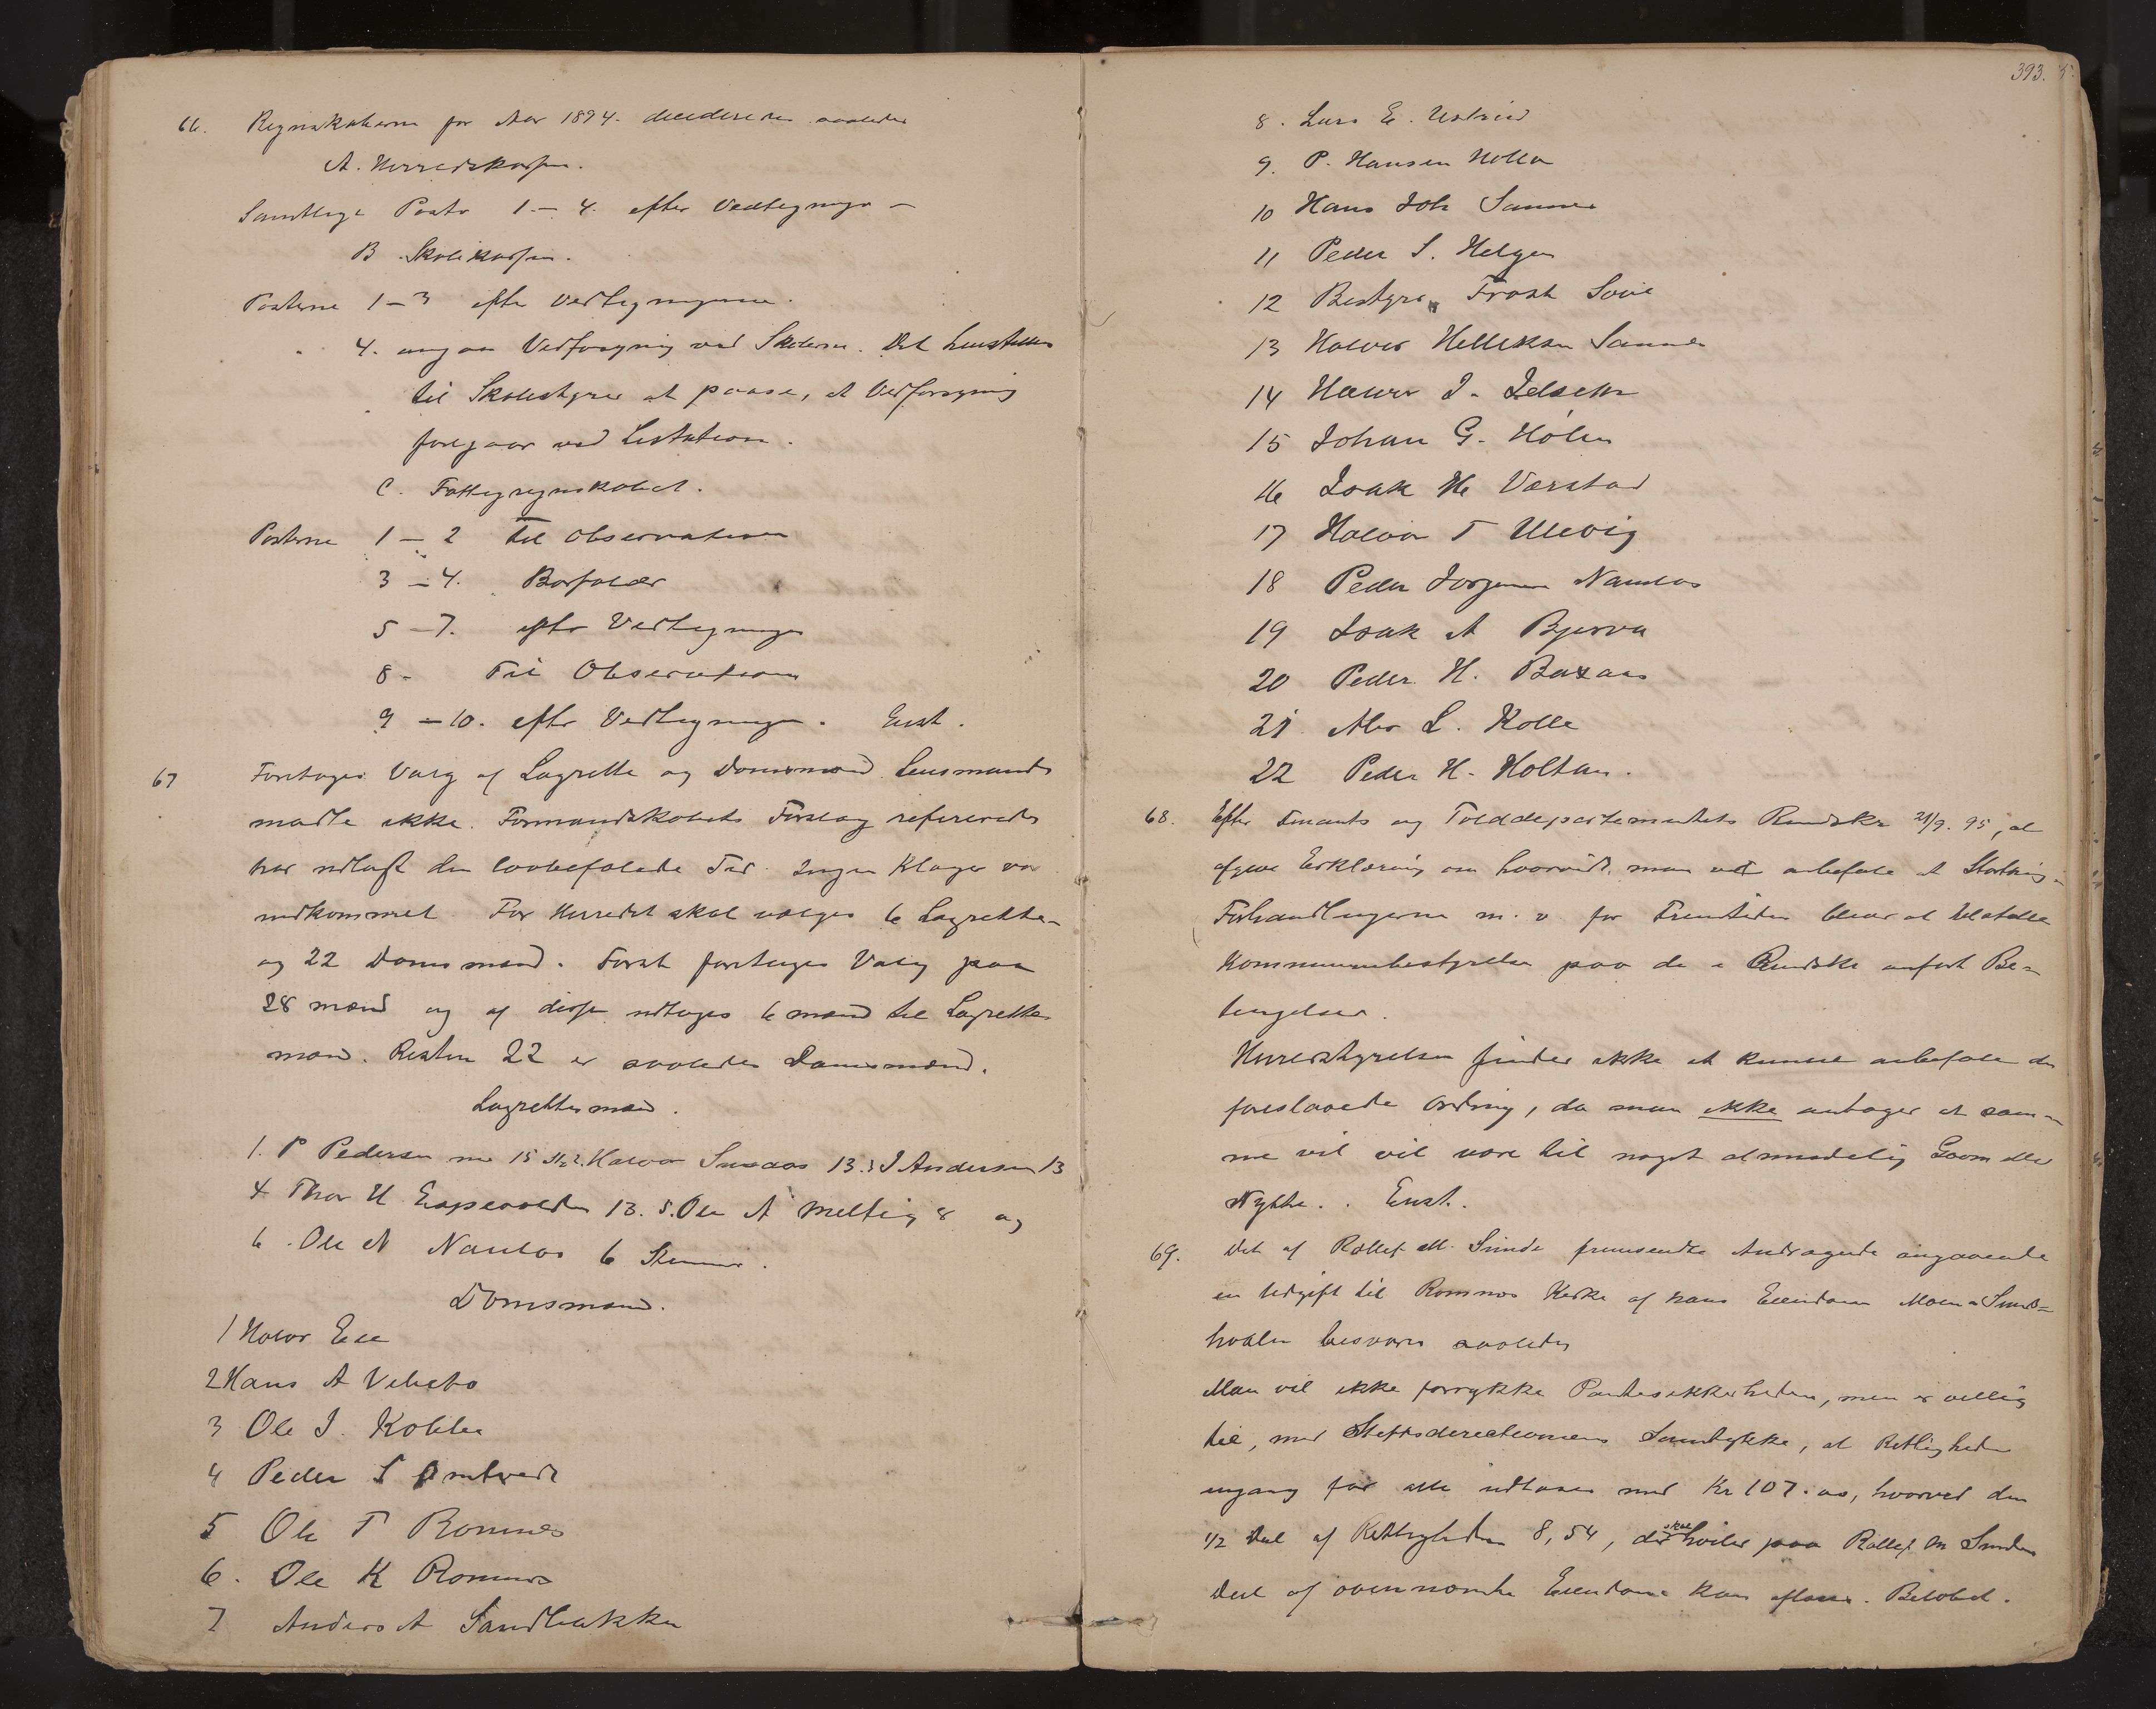 66. Regnskaberne for Aar 1894. decideredes saaledes
A. Herredskassen.
Samtlige Poster 1 – 4. efter Vedtegninger –
B. Skolekassen.
Posterne 1 – 3 efter Vedtegningerne.
4. angaar Vedforsyning ved Skolerne. Det henstilles
til Skolestyret at paase, at Vedforsyning
foregaar ved Lisitation.
C. Fattigregnskabet.
Posterne 1 – 2 til Observation
3 – 4. Bortfalder
5 – 7. efter Vedtegninger
8 - Til Observation
9 – 10. efter Vedtegninger. Enst.
67 Foretoges Valg af Lagrette og Domsmænd. Lensmanden
mødte ikke. Formandskabets Forslag refereredes
har udlagt den lovbefalede Tid. Ingen Klager var
indkommet. For Herredet skal vælges 6 Lagrette-
og 22 Domsmænd. Først foretages Valg paa
28 mænd og af disse udtages 6 mænd til Lagrette-
mænd. Resten 22 er saaledes Domsmænd.
Lagrettesmænd.
1. P Pedersen med 15 St. 2. Halvor Snedaas 13. 3 J Andersen 13
4 Thor H Espevolden 13. 5. Ole A Melteig 8 og
6. Ole N Namlos 6 Stemmer.
Domsmænd.
1 Halvor Eie
2 Hans A Vibeto
3 Ole J. Kolbu
4 Peder S Omtvedt
5 Ole T Romnes
6. Ole K Romnes
7 Anders A Sandbakken
393.
8. Lars E. Ustrud
9. P. Hansen Holla
10 Hans Joh Sannes
11 Peder S. Helgen
12 Bestyrer Frosk Sove
13 Halvor Helleksen Sannes
14 Halvor J. Jelseth
15 Johan G. Holm
16 Isak H Værstad
17 Halvor T Ulevig
18 Peder Jørgensen Namlos
19 Isak A Bjerva
20 Peder H. Baraas
21 Abr L. Kolle
22 Peder H. Holtan.
68. Efter Finants og Tolddepartementets Rundskr 21/9. 95, at
afgive Erklæring om hvorvidt man vil anbefale at Storthings
Forhandlingerne m. v. for Fremtiden bliver at tilstille
Kommunebestyrelsen paa de i Rundskr anført Be-
tingelser.
Herredstyrelsen finder ikke at kunne anbefale den
foreslaaede Ordning, da man ikke antager at sam-
me vil vil være til noget almindelig Gavn eller
Nytte. . Enst.
69. Det af Rollef M. Sunde fremsendte Andragende angaaende
en Udgift til Romnes Kirke af hans Eiendom Moen i Sunds-
hvalen besvares saaledes
Man vil ikke forrykke Pantesikkerheden, men er villig
til, med Stiftsdirectionens Samtykke, at Rettigheden
engang for alle udløses med Kr 107. 00, hvorved den
1/2 Del af Rettigheden 8,54, der skal hvile paa Rollef M Sundes
Deel af ovennævnte Eiendom kan afløses. Beløbet.